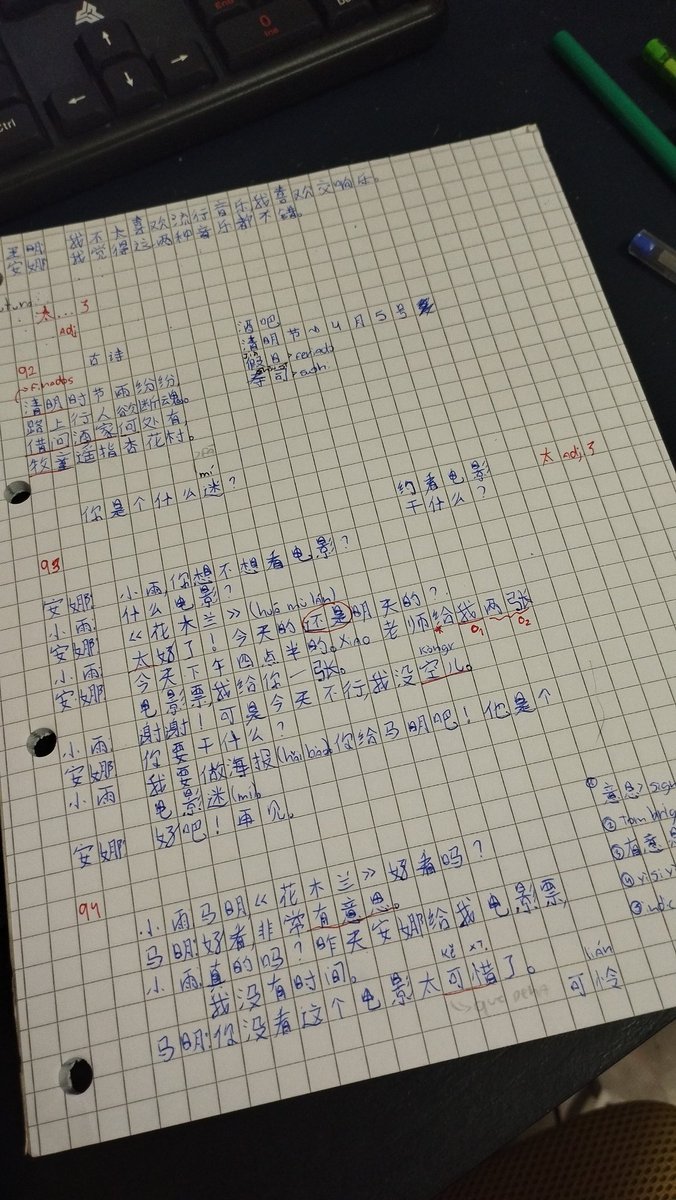 Ctrl
End
0
Ins
王明 我不太喜欢流行音乐,我喜欢交响乐。
安娜 我觉得这两种音乐都不错。
太...了
Adj
92 古诗
清明时节雨纷纷,
路上行人欲断魂。
借问酒家何处有,
牧童遥指杏花村。
酒吧
清明节 4月5号
假日 feriado
寿司
mí
你是个什么迷?
约看电影
干什么?
太 adj 了
93
安娜: 小雨,你想不想看电影?
小雨: 什么电影?
安娜 《花木兰》(huā mù lán)
小雨 太好了!今天的还是明天的?
安娜 今天下午四点半的。Xiao 老师给我两张
O1 O2
电影票,我给你一张。
kòngr
小雨 谢谢!可是今天不行,我没空儿。
安娜 你要干什么?
小雨 我要做海报(hǎi bào)你给马明吧!他是个
电影迷(mí)。
安娜 好吧!再见。
94
小雨: 马明,《花木兰》好看吗?
马明: 好看,非常有意思。
小雨: 真的吗?昨天安娜给我电影票,
我没有时间。
kě xī
马明: 你没看这个电影太可惜了。
que pena
lián
可怜
① 意思
②
③ 有意思
④
⑤